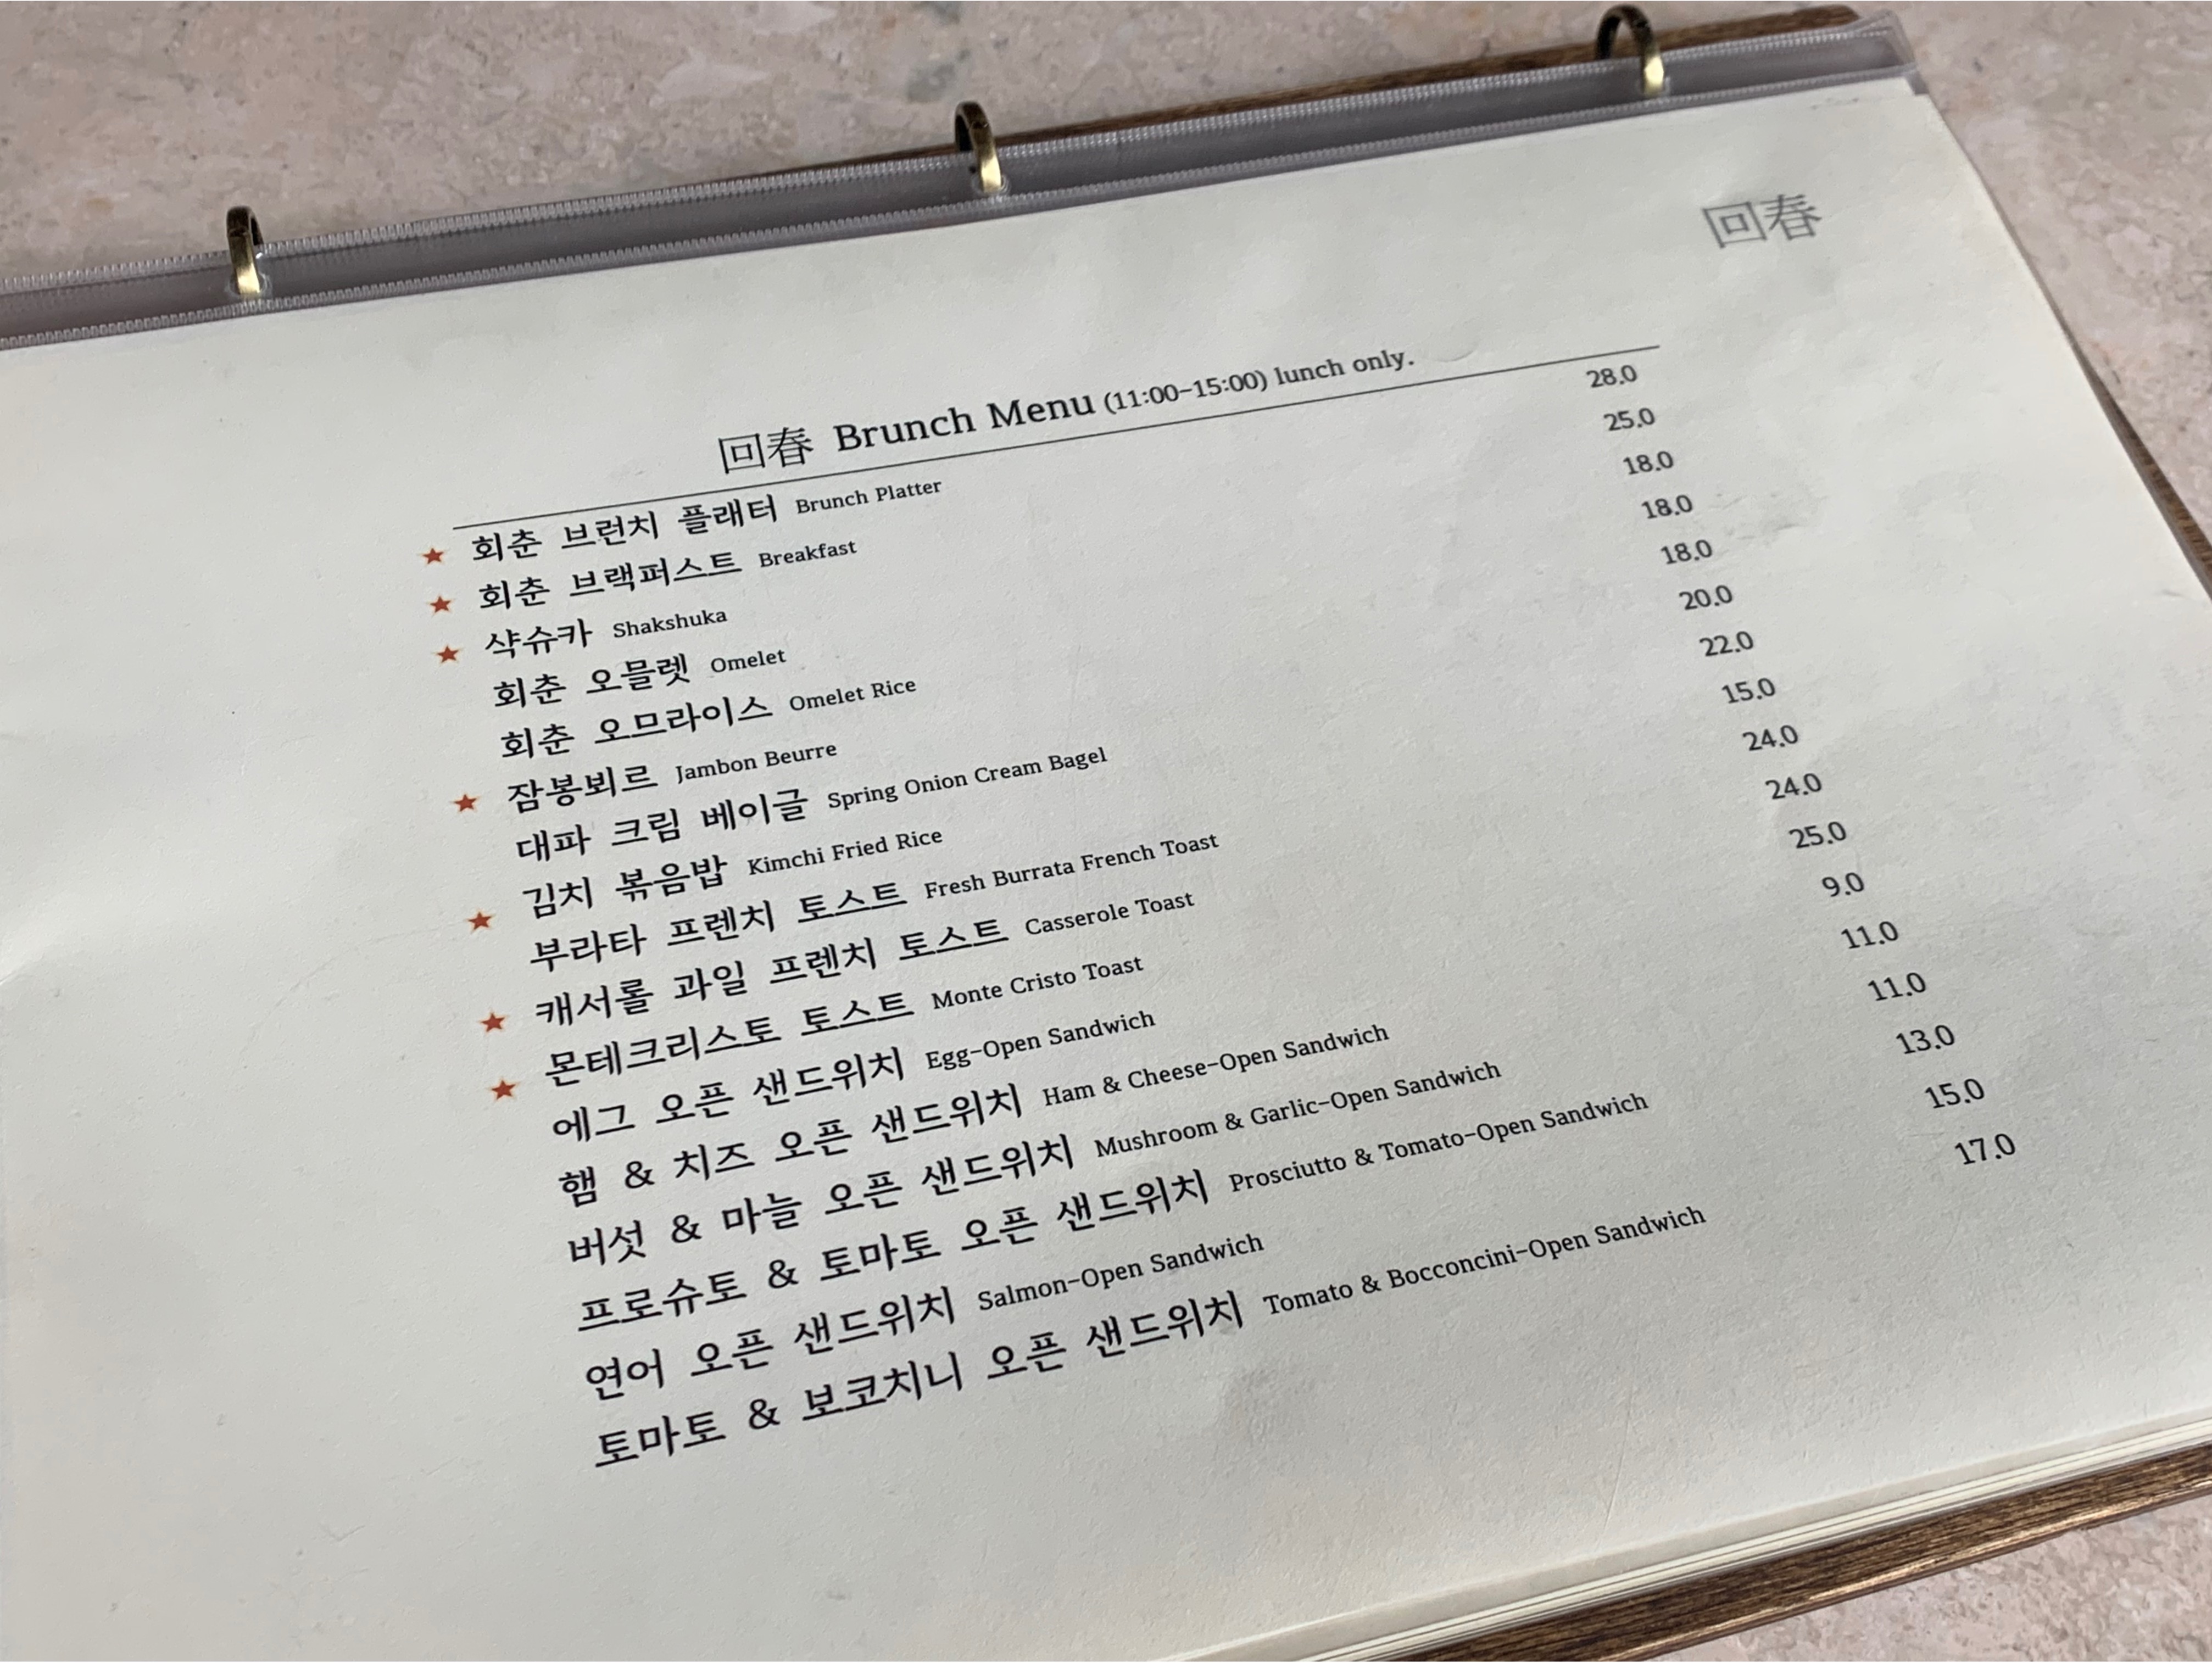 回春
回春 Brunch Menu (11:00-15:00) lunch only.
★ 회춘 브런치 플래터 Brunch Platter 28.0
★ 회춘 브랙퍼스트 Breakfast 25.0
★ 샥슈카 Shakshuka 18.0
회춘 오믈렛 Omelet 18.0
회춘 오므라이스 Omelet Rice 18.0
★ 잠봉뵈르 Jambon Beurre 20.0
대파 크림 베이글 Spring Onion Cream Bagel 22.0
김치 볶음밥 Kimchi Fried Rice 15.0
★ 부라타 프렌치 토스트 Fresh Burrata French Toast 24.0
★ 캐서롤 과일 프렌치 토스트 Casserole Toast 24.0
★ 몬테크리스토 토스트 Monte Cristo Toast 25.0
에그 오픈 샌드위치 Egg-Open Sandwich 9.0
햄 & 치즈 오픈 샌드위치 Ham & Cheese-Open Sandwich 11.0
버섯 & 마늘 오픈 샌드위치 Mushroom & Garlic-Open Sandwich 11.0
프로슈토 & 토마토 오픈 샌드위치 Prosciutto & Tomato-Open Sandwich 13.0
연어 오픈 샌드위치 Salmon-Open Sandwich 15.0
토마토 & 보코치니 오픈 샌드위치 Tomato & Bocconcini-Open Sandwich 17.0